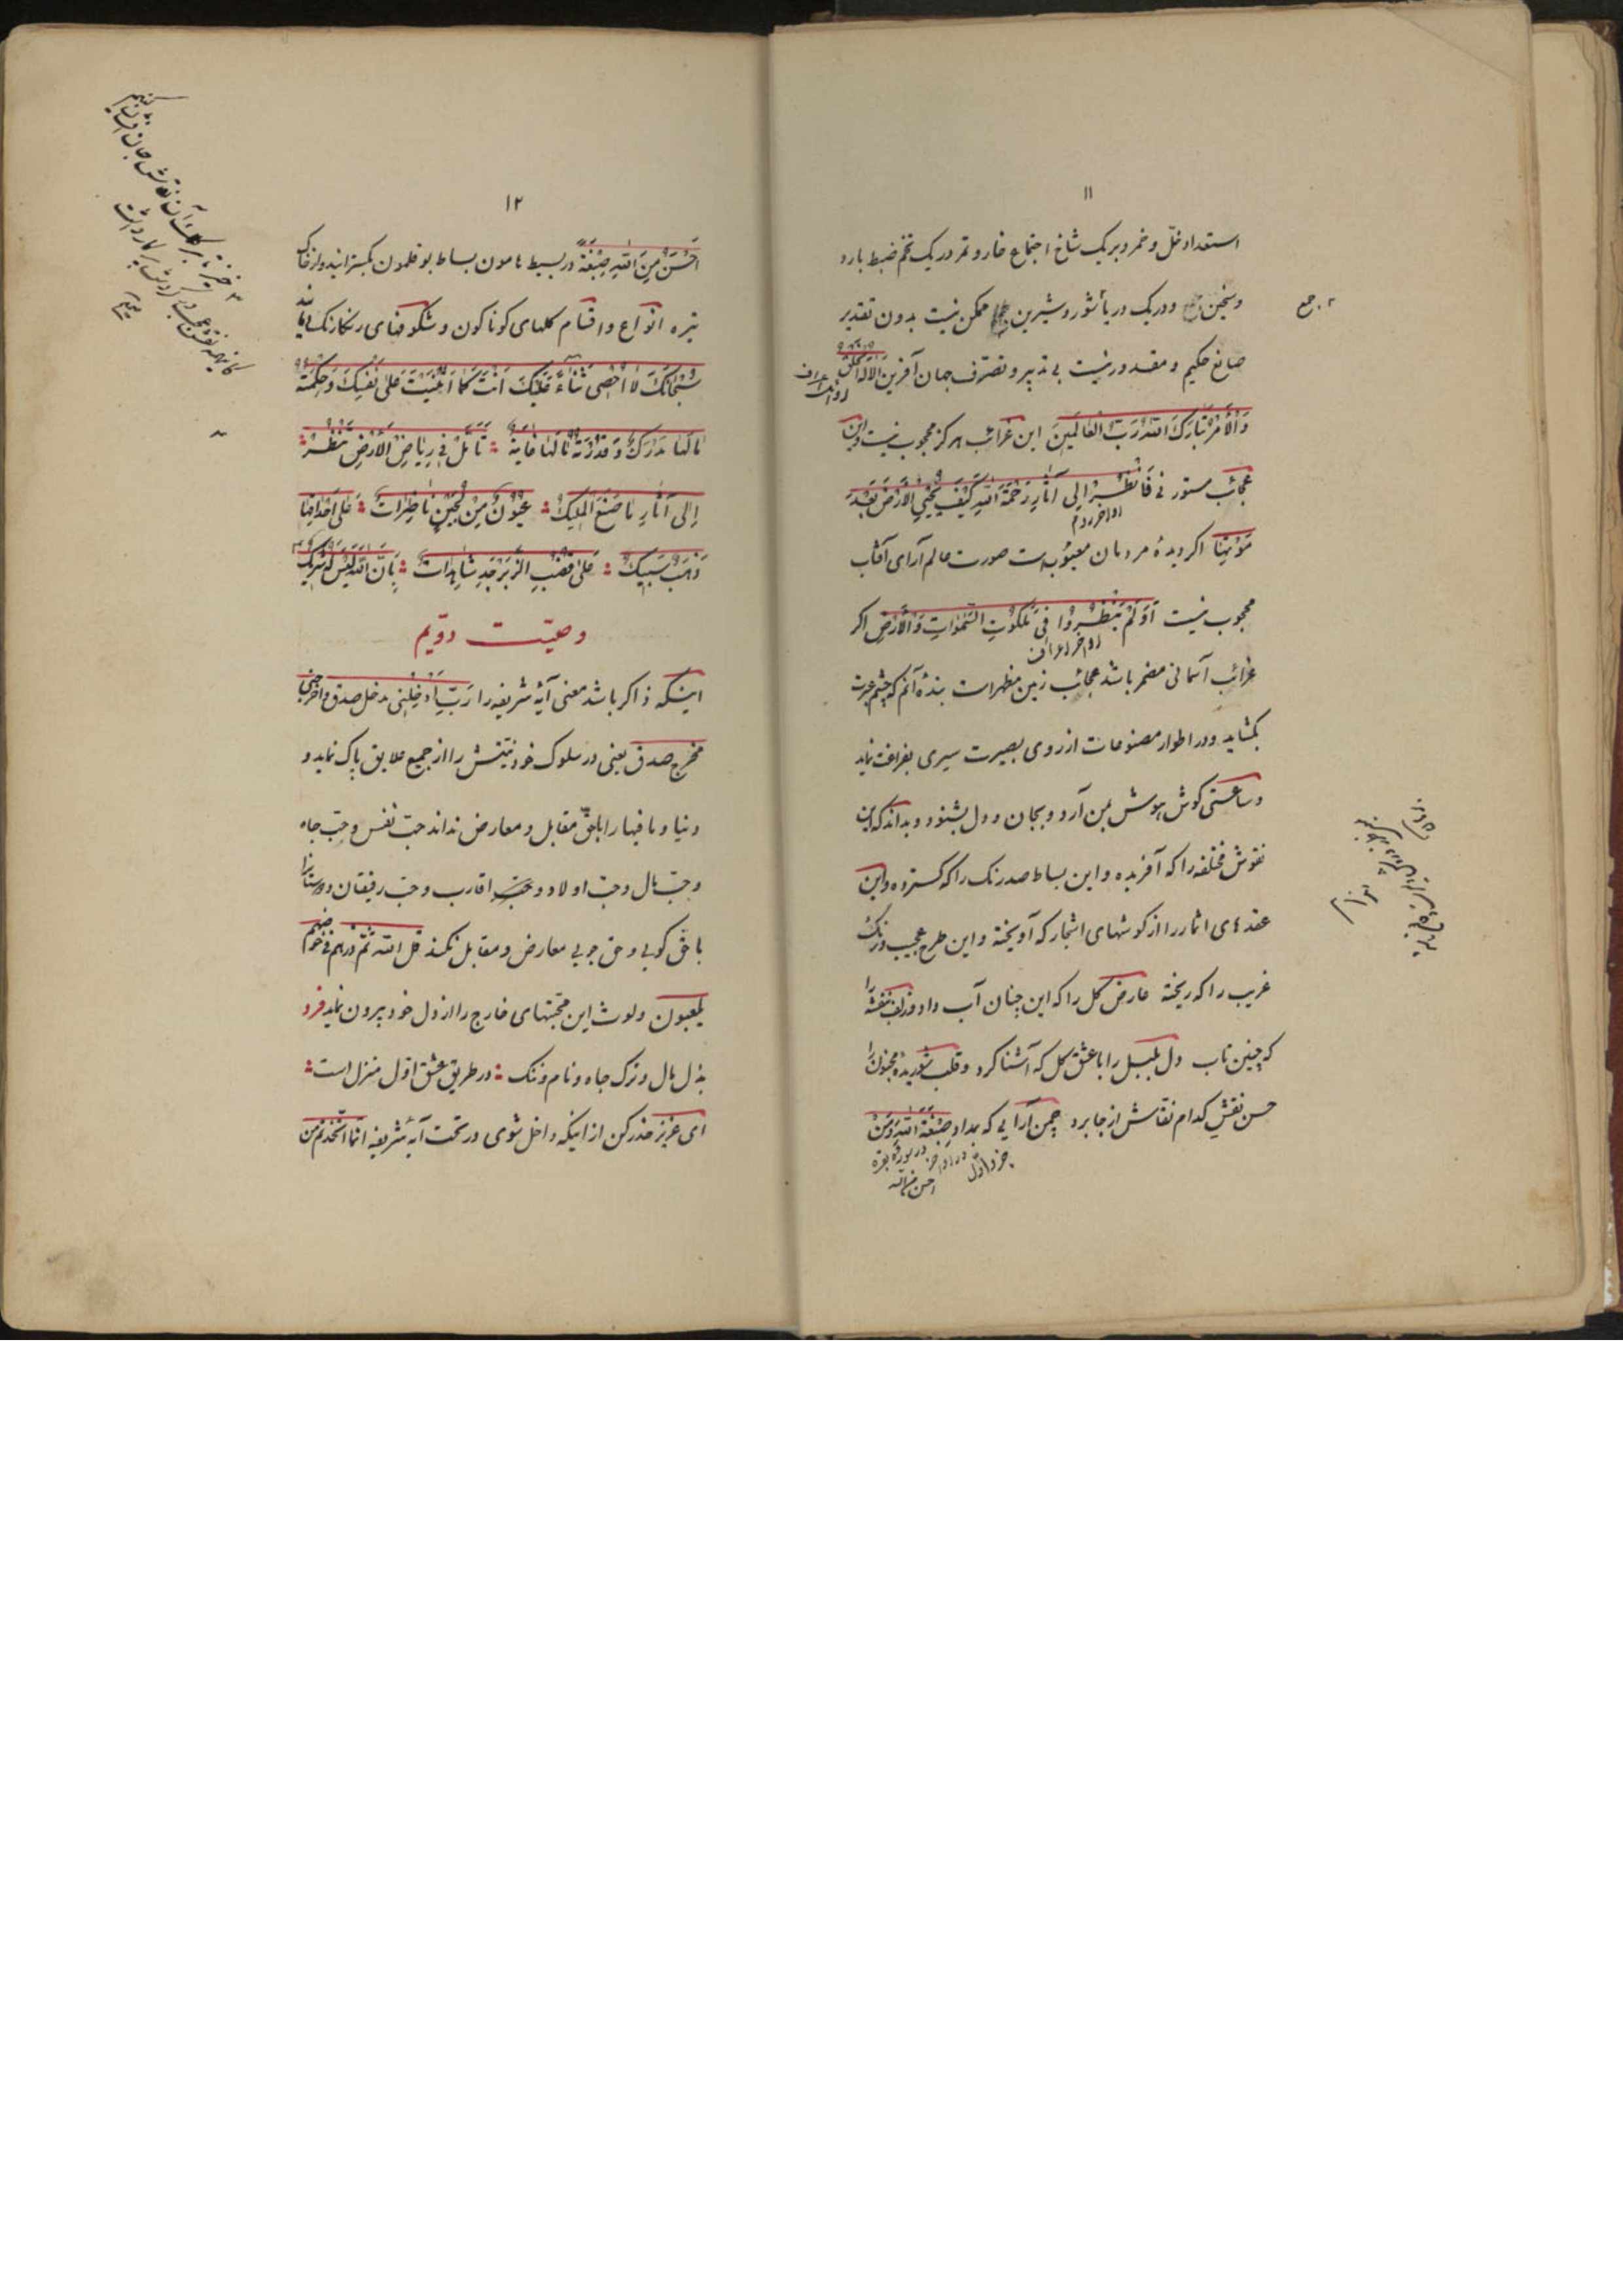 ۱۱
استعداد خلّ و خمر و بر یک شاخ اجتماع خار و تمر در یک تخم ضبط بارد
و سخین و در یک دریا شور و شیرین ممکن نیست بدون تقدیر
۲. جمع
صانع حکیم و مقدور نیست بی تدبیر و تصرّف جهان آفرین اَلا لَهُ الخَلقُ
وَالاَمرُ تَبارَکَ اللهُ رَبُّ العالَمینَ این غرائب هرکز محجوب نیست و این
عجائب مستور نی فَانظُر اِلی آثارِ رَحمَةِ اللهِ کَیفَ یُحیِی الاَرضَ بَعدَ
مَوتِها اکر دیدهٔ مردمان معیوب است صورت عالم آرای آفتاب
محجوب نیست اَوَلَم یَنظُرُوا فی مَلَکُوتِ السَّمواتِ وَالاَرضِ اکر
اواخر اعراف
غرائب آسمانی مضمر باشد عجائب زمین مظهر است بندهٔ آنم که چشم عبرت
بکشاید و در اطوار مصنوعات از روی بصیرت سیری بفراغت نماید
و ساعتی کوش هوش بمن آرد و بجان و دل بشنود و بداند که این
نقوش مختلفه را که آفریده و این بساط صدرنک را که کسترده و این
عقدهای اثمار را از کوشهای اشجار که آویخته و این طرح عجیب و رنک
غریب را که ریخته عارض کل را که این چنان آب داد و زلف بنفشه را
که چنین تاب دل بلبل را با عشق کل که آشنا کرد و قلب شوریدهٔ مجنون را
حسن نقش کدام نقاش از جا برد چمن آرایی که بمداد صِبغَةَ اللهِ وَمَن
جزو اول در اواخر در سوره بقره
احسن من الله
۱۲
اَحسَنُ مِنَ اللهِ صِبغَةً در بسیط هامون بساط بوقلمون بکسترانید و از خاک
تیره انواع و اقسام کلهای کوناکون و شکوفهای رنکارنک
سُبحانَکَ لا اُحصی ثَناءً عَلَیکَ اَنتَ کَما اَثنَیتَ عَلی نَفسِکَ وَ حِکمَتُهُ
ما لَها مَدرَکٌ وَ قُدرَتُهُ ما لَها غایَةٌ ؞ تَأَمَّل فی رِیاضِ الاَرضِ وَنظُر ؞
اِلی آثارِ ما صَنَعَ المَلیکُ ؞ عُیُونٌ مِن لُجَینٍ ناظِراتٌ ؞ عَلی اَحداقِها
ذَهَبٌ سَبیکٌ ؞ عَلی قُضُبِ الزَّبَرجَدِ شاهِداتٌ ؞ بِاَنَّ اللهَ لَیسَ لَهُ شَریکٌ
وصیّت دوّیم
اینکه ذاکر باشد معنی آیهٔ شریفه را رَبِّ اَدخِلنی مدخل صدق و اخرجنی
مخرج صدق یعنی در سلوک خود نیّتش را از جمیع علایق پاک نماید و
دنیا و ما فیها را با حقّ مقابل و معارض نداند حبّ نفس و حبّ جاه
و حبّ مال و حبّ اولاد و حبّ اقارب و حبّ رفیقان و دوستان را
با حق کویی و حق جویی معارض و مقابل نکند قل الله ثمّ ذرهم فی خوضهم
یلعبون و لوث این محبّتهای خارج را از دل خود بیرون نماید فرد
بذل مال و ترک جاه و نام و ننک ؞ در طریق عشق اوّل منزل است ؞
ای عزیز حذر کن از اینکه داخل شوی در تحت آیهٔ شریفه انّما اتّخذتم من